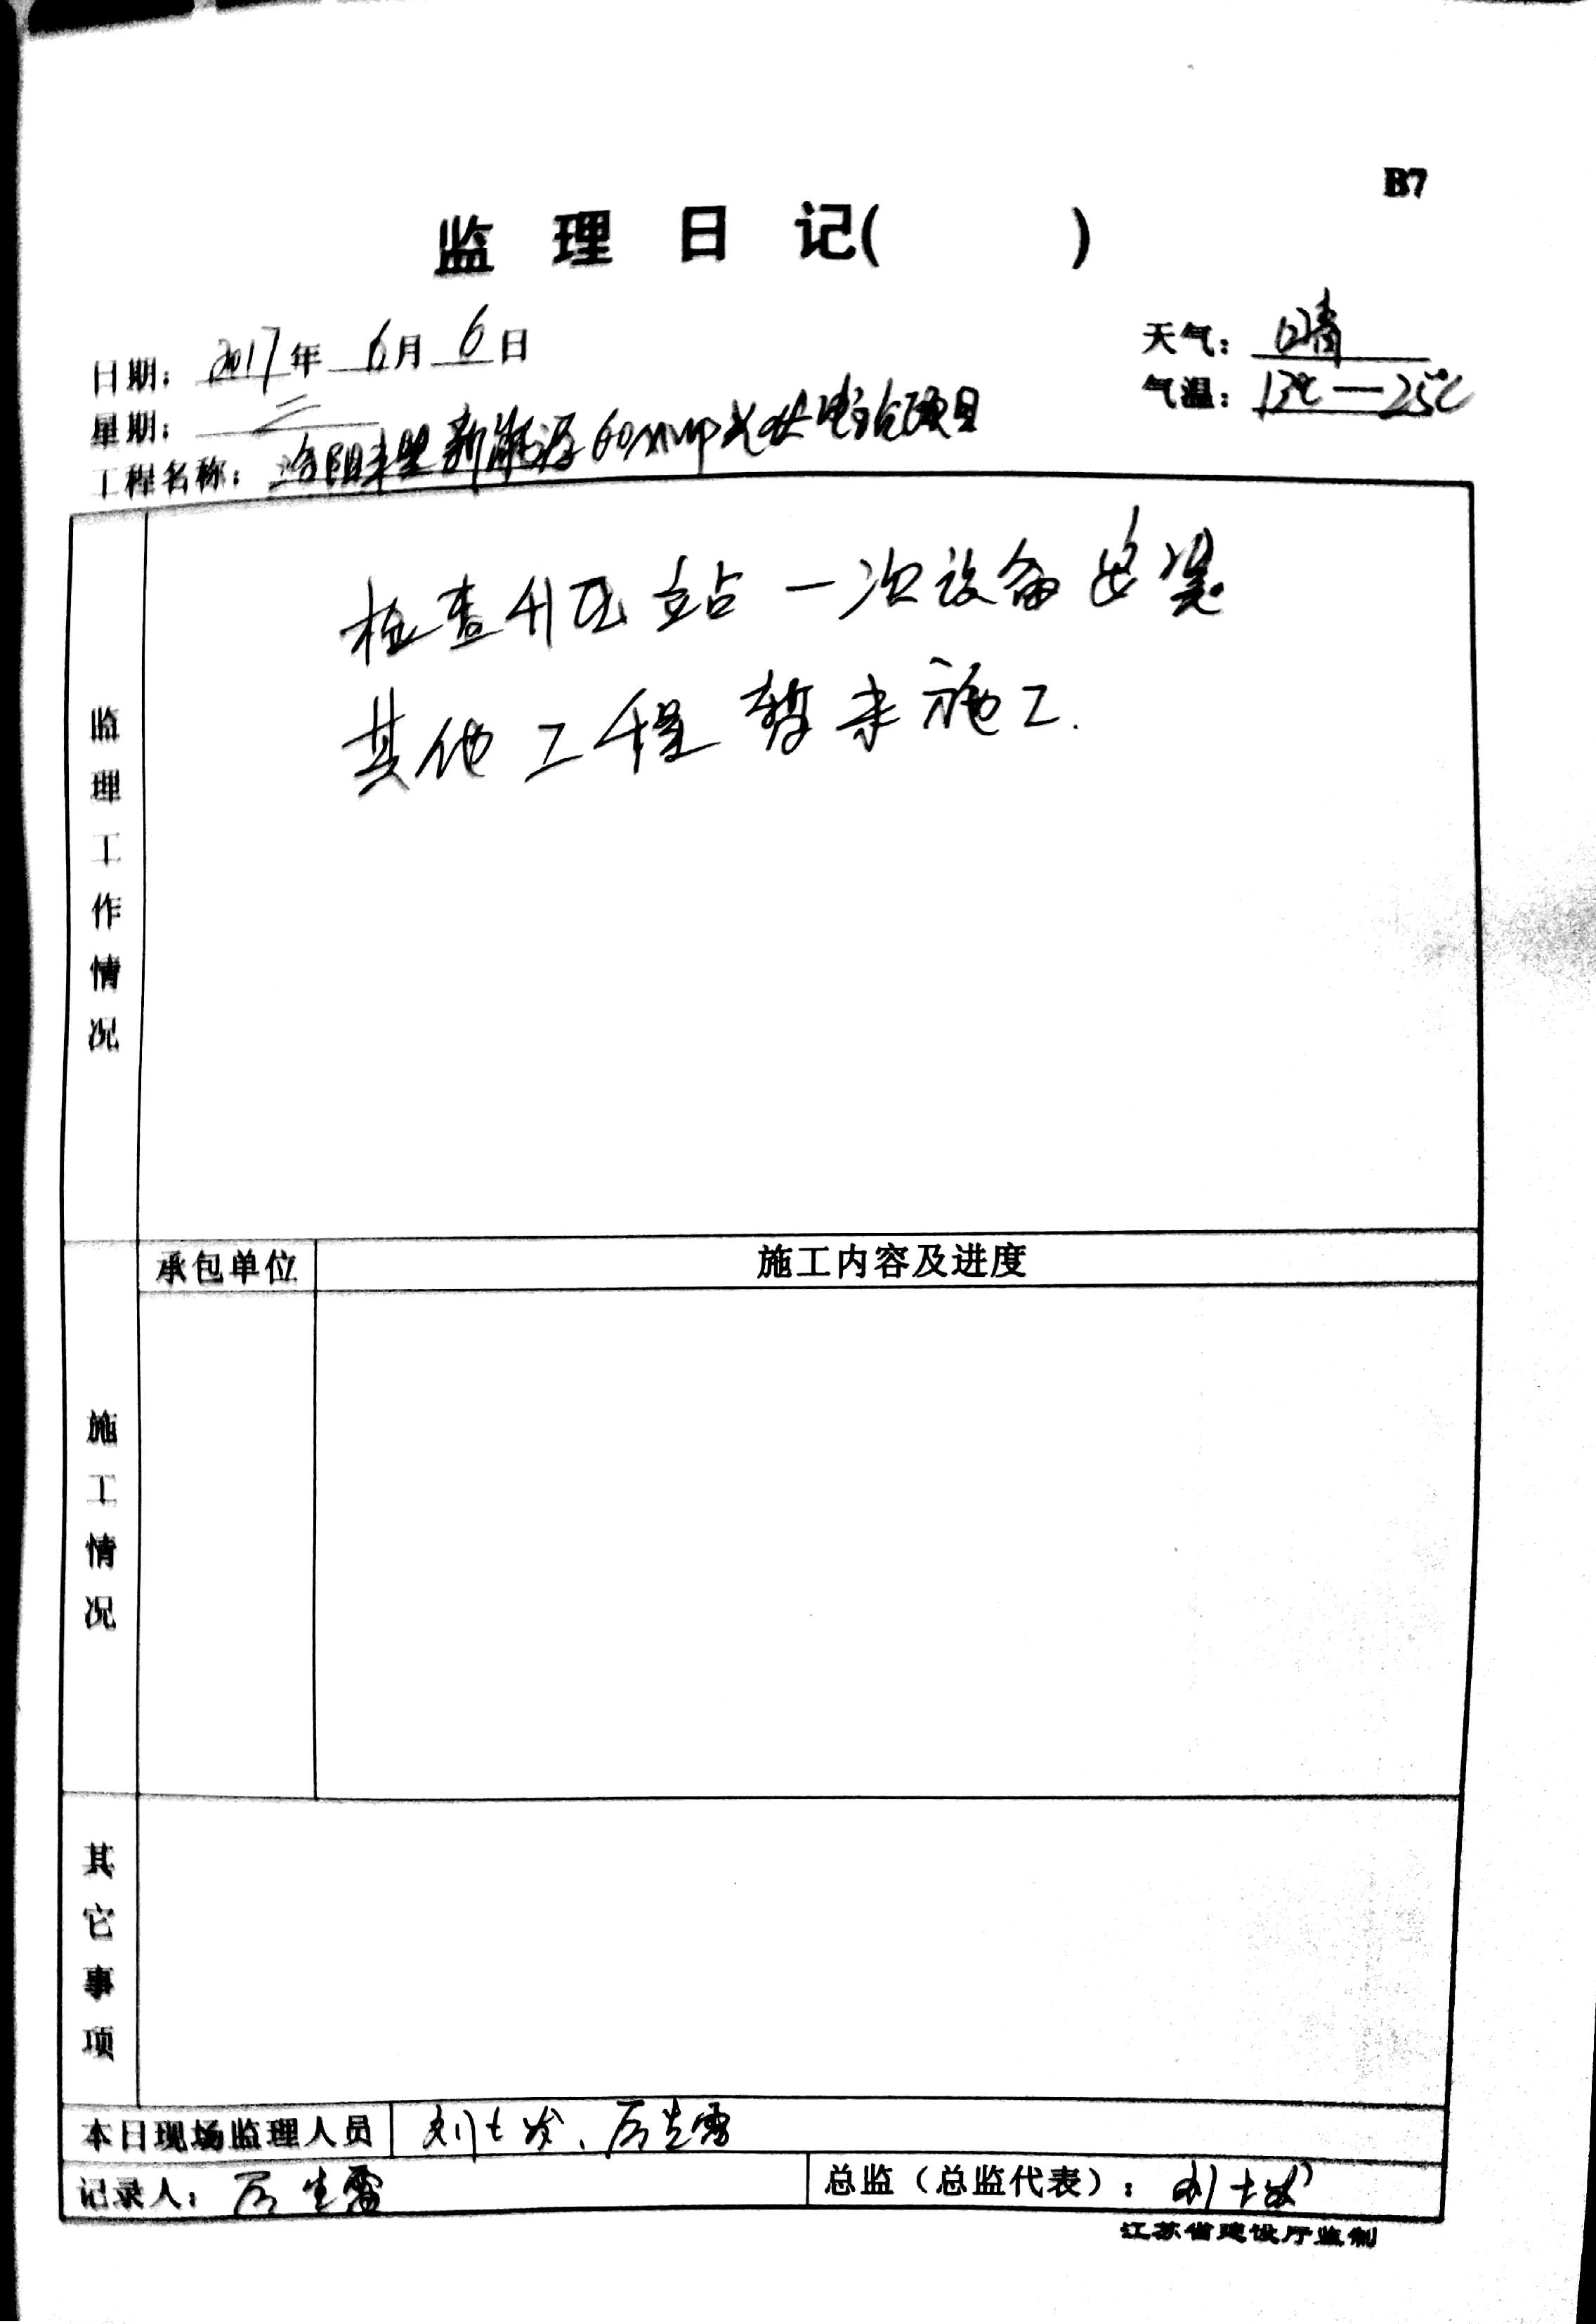 B7
监理日记( )
日期：2017年6月6日
天气：晴
星期：二
气温：13℃—25℃
工程名称：洛阳 新能源60MWp光伏电站项目
监理工作情况
检查升压站一次设备安装
其他工程暂未施工.
承包单位
施工内容及进度
施工情况
其它事项
本日现场监理人员
刘士发、厉
记录人：厉
总监（总监代表）：刘士发
江苏省建设厅监制